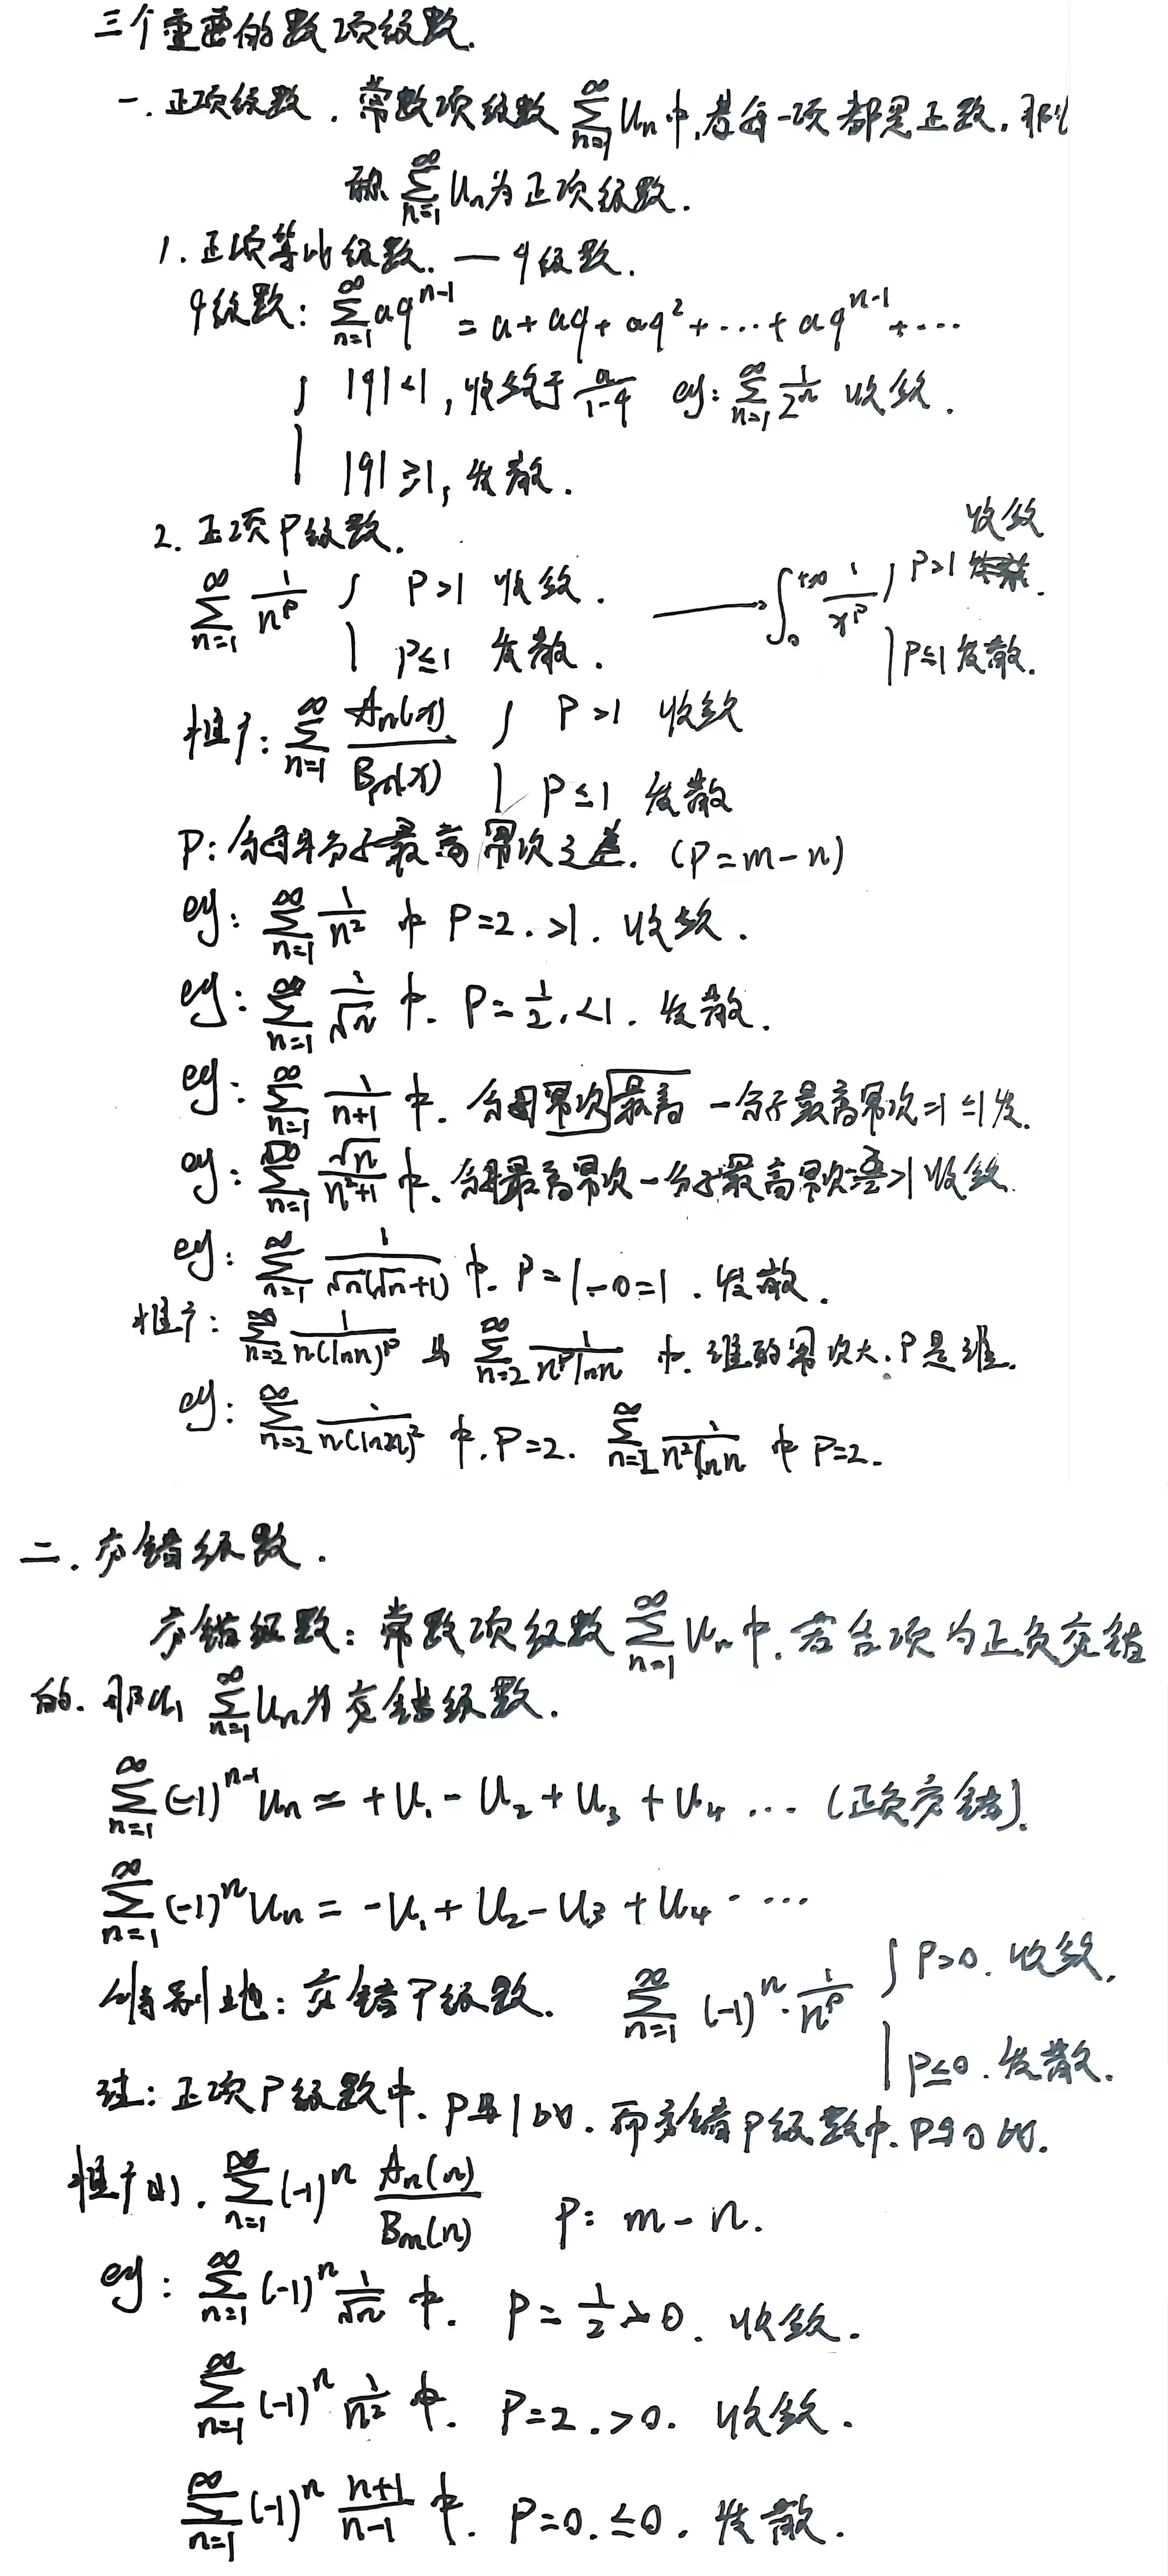 三个重要的数项级数.
一. 正项级数. 常数项级数 ∑_{n=1}^{∞} Un 中, 若每一项都是正数, 那么
称 ∑_{n=1}^{∞} Un 为正项级数.
1. 正项等比级数. — q级数.
q级数: ∑_{n=1}^{∞} aq^{n-1} = a + aq + aq² + … + aq^{n-1} + …
|q|<1, 收敛于 a/(1-q) eg: ∑_{n=1}^{∞} 1/2^n 收敛.
|q|≥1, 发散.
2. 正项P级数.
∑_{n=1}^{∞} 1/n^P { P>1 收敛. ⟶ ∫_0^{+∞} 1/x^P { P>1 收敛.
P≤1 发散. P≤1 发散.
推广: ∑_{n=1}^{∞} An(x)/Bm(x) { P>1 收敛
P≤1 发散
P: 分母与分子最高幂次之差. (P=m-n)
eg: ∑_{n=1}^{∞} 1/n² 中 P=2. >1. 收敛.
eg: ∑_{n=1}^{∞} 1/√n 中. P=1/2. <1. 发散.
eg: ∑_{n=1}^{∞} 1/(n+1) 中. 分母幂次最高 - 分子最高幂次=1 ≤1 发.
eg: ∑_{n=1}^{∞} √n/(n²+1) 中. 分母最高幂次-分子最高幂次差>1 收敛.
eg: ∑_{n=1}^{∞} 1/(√n(√n+1)) 中. P=1-0=1. 发散.
推广: ∑_{n=2}^{∞} 1/(n(lnn)^P) 与 ∑_{n=2}^{∞} 1/(n^P lnn) 中. 谁的幂次大. P是谁.
eg: ∑_{n=2}^{∞} 1/(n(lnn)²) 中. P=2. ∑_{n=2}^{∞} 1/(n² lnn) 中 P=2.
二. 交错级数.
交错级数: 常数项级数 ∑_{n=1}^{∞} Un 中. 若各项为正负交错
的. 那么 ∑_{n=1}^{∞} Un 为交错级数.
∑_{n=1}^{∞} (-1)^{n-1} Un = +U₁ - U₂ + U₃ + U₄ … (正负交错).
∑_{n=1}^{∞} (-1)^n Un = -U₁ + U₂ - U₃ + U₄ …
特别地: 交错P级数. ∑_{n=1}^{∞} (-1)^n · 1/n^P { P>0. 收敛.
P≤0. 发散.
注: 正项P级数中. P与1比. 而交错P级数中. P与0比.
推广的. ∑_{n=1}^{∞} (-1)^n An(n)/Bm(n) P: m-n.
eg: ∑_{n=1}^{∞} (-1)^n 1/√n 中. P=1/2>0. 收敛.
∑_{n=1}^{∞} (-1)^n 1/n² 中. P=2. >0. 收敛.
∑_{n=1}^{∞} (-1)^n (n+1)/(n-1) 中. P=0. ≤0. 发散.